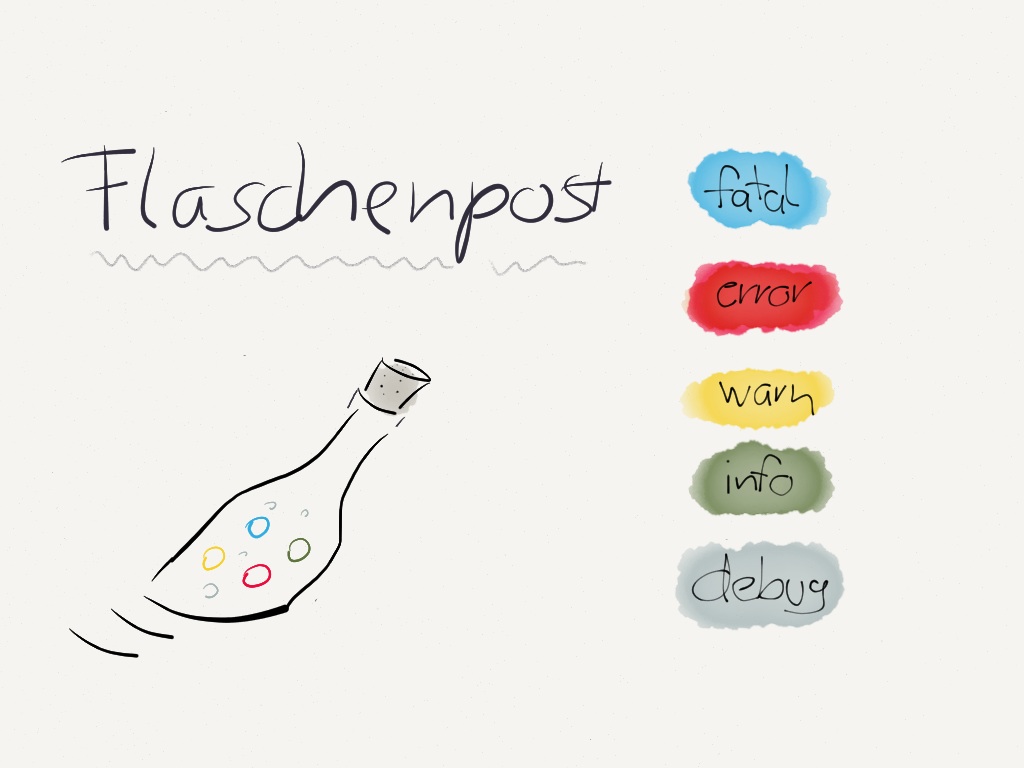 Flaschenpost
fatal
error
warn
info
debug